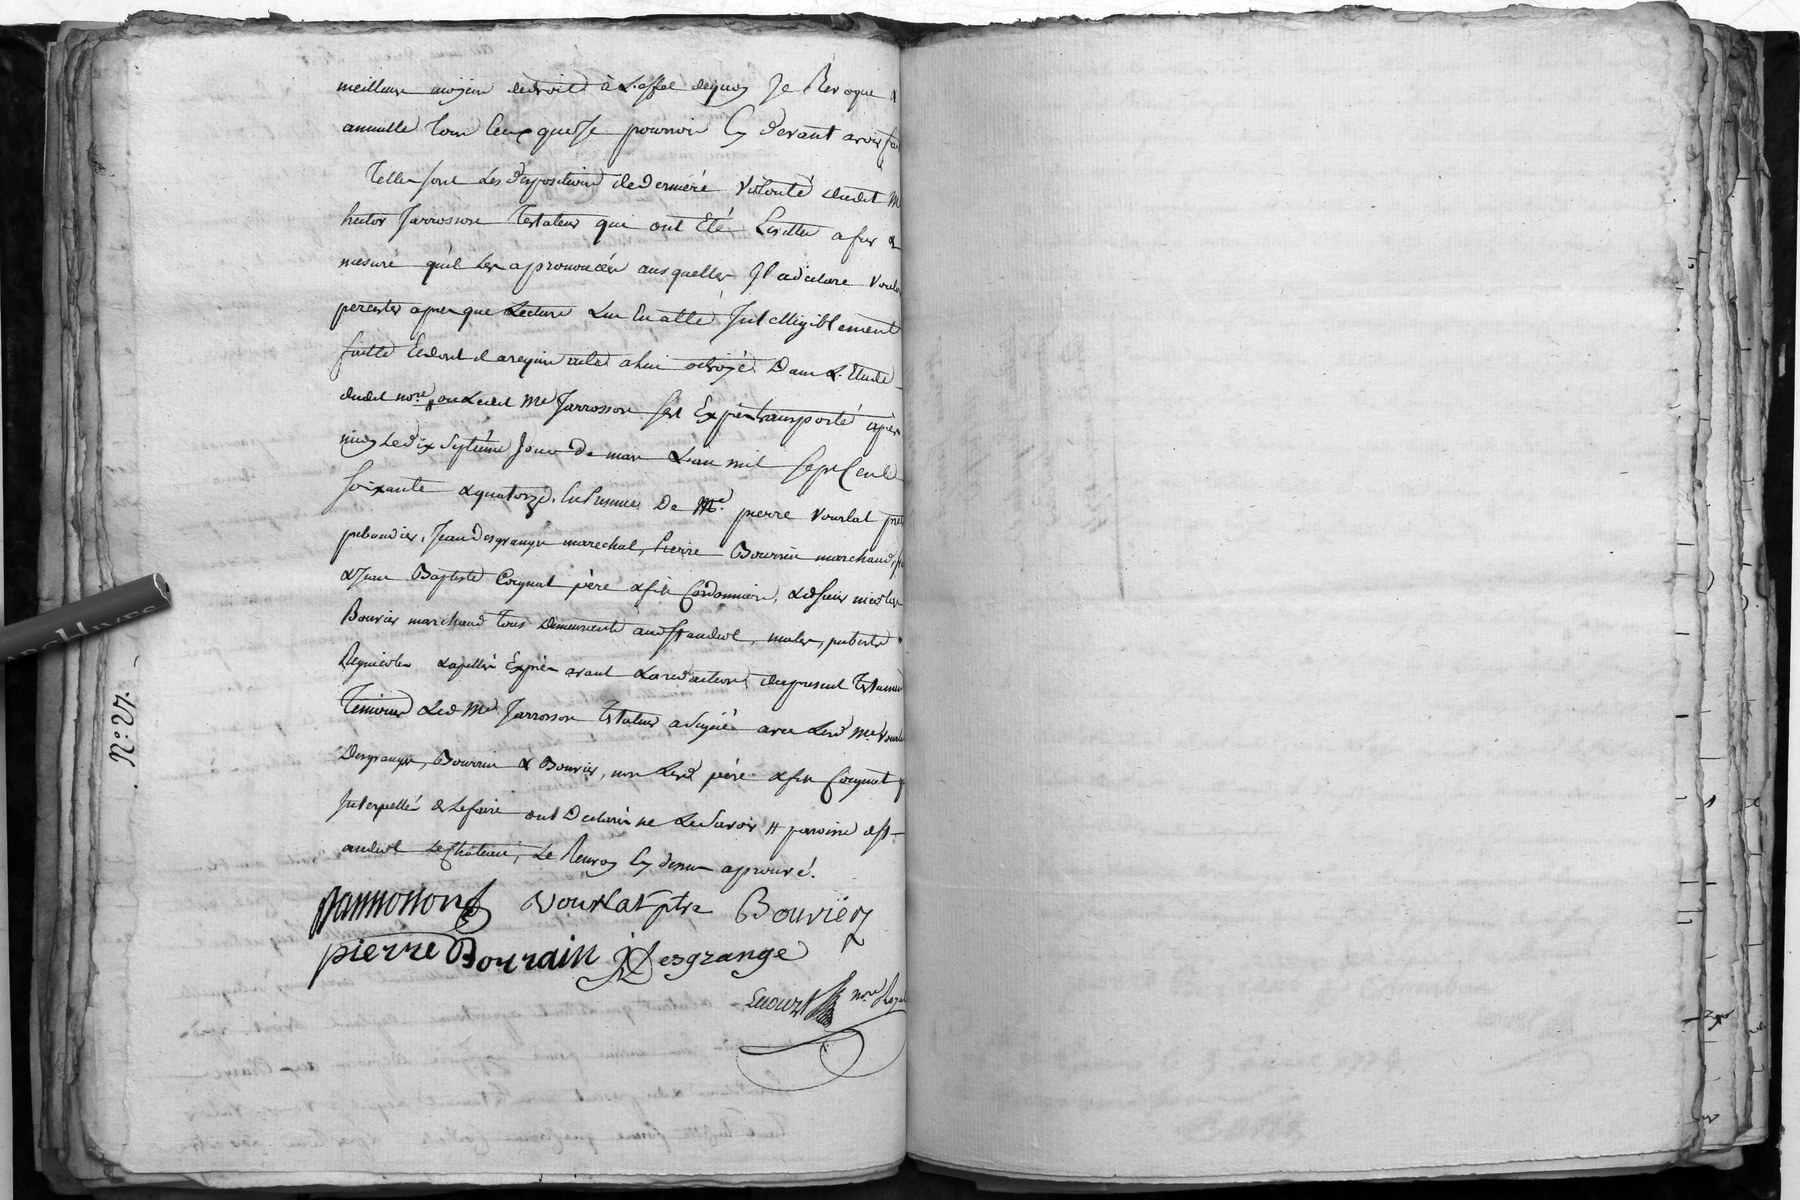 meilleur moyen dedroit à L'effet dequoy Je Revoque &
annulle tous Ceux queJe pourrois Cy devant avoir fai
Telles sont Les dispositions dederniere volonté dudit Me
hector Jarrosson testateur qui ont Eté Ecrittes a fur &
mesure qu'il Les aprononcées ausquelles Il adeclare vouloi
persister apres que Lecture Luy En aEté Intelligiblement
faitte Et dont il arequis acte a lui octroyé Dans L'Etude
dudit nore // ou Ledit Me Jarrosson s'est Exprès transporté apres
midy Le dix septième Jour de mars L'an mil sept Cent
soixante & quatorze. En Presence De Me pierre vourlat pre
prebandier, Jean desgrange marechal, Pierre Bourrin marchand,
& Jean Baptiste Coignat père & fils Cordonniers, & dsieur nicolas
Bouvier marchand tous Demeurants audSt andéol, males, puberes
Regnicoles & apellés Exprès avant La redaction du present Testament
Temoins Led Me Jarrosson testateur a signé avec Lesd Me Vourlat
Desgrange, Bourrin & Bouvier, non Lesd père & fils Coignat q
Interpellés de Lefaire ont Declaré ne Le Savoir // paroisse de St
andéol Le Château, Le Renvoy Cy dessus aprouvé.
Jarrosson Vourlat ptre Bouviér
pierre Bourain J Desgrange
nore Royal
N.° 27.
ARCHIVES